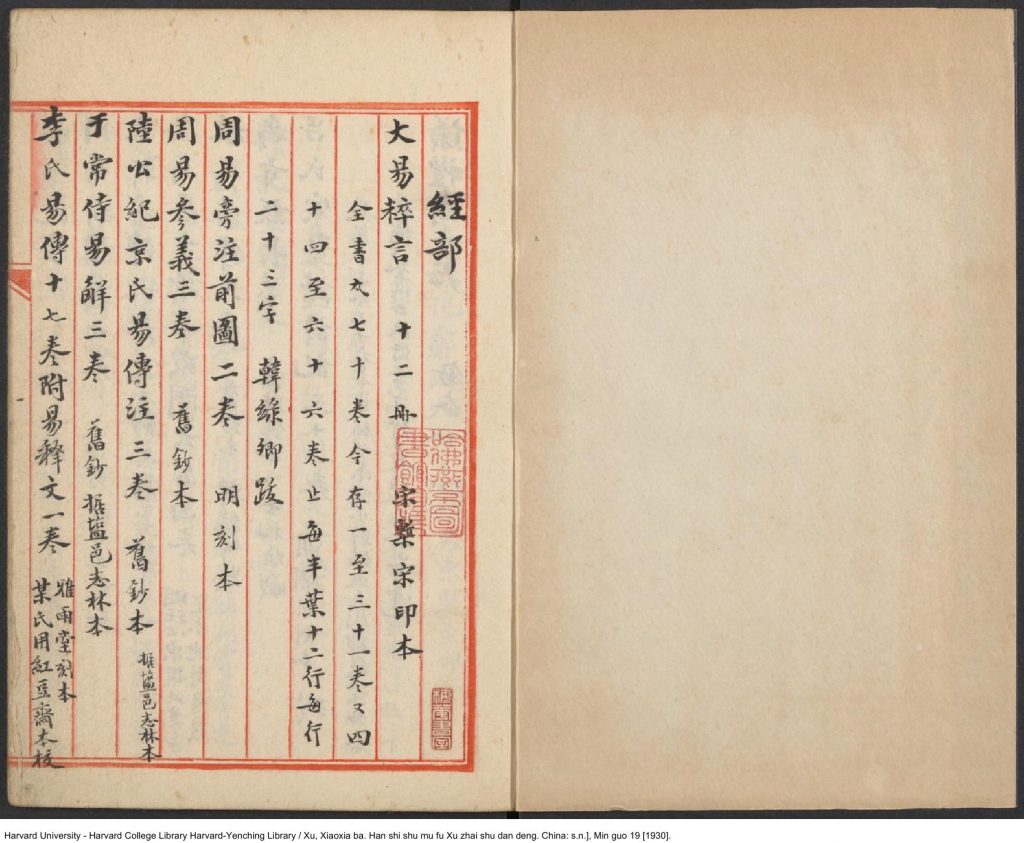 經部
大易粹言 十二冊 宋槧宋印本
全書九七十卷今存一至三十一卷又四
十四至六十六卷止每半葉十二行每行
二十三字 韓綠卿跋
周易旁注前圖二卷 明刻本
周易參義三卷 舊鈔本
陸公紀京氏易傳注三卷 舊鈔本 據鹽邑志林本
于常侍易解三卷 舊鈔 據鹽邑志林本
李氏易傳十七卷附易釋文一卷 雅雨堂刻本
葉氏用紅豆齋本校
哈佛燕京
書館
Harvard University - Harvard College Library Harvard-Yenching Library / Xu, Xiaoxia ba. Han shi shu mu fu Xu zhai shu dan deng. China: s.n.], Min guo 19 [1930].